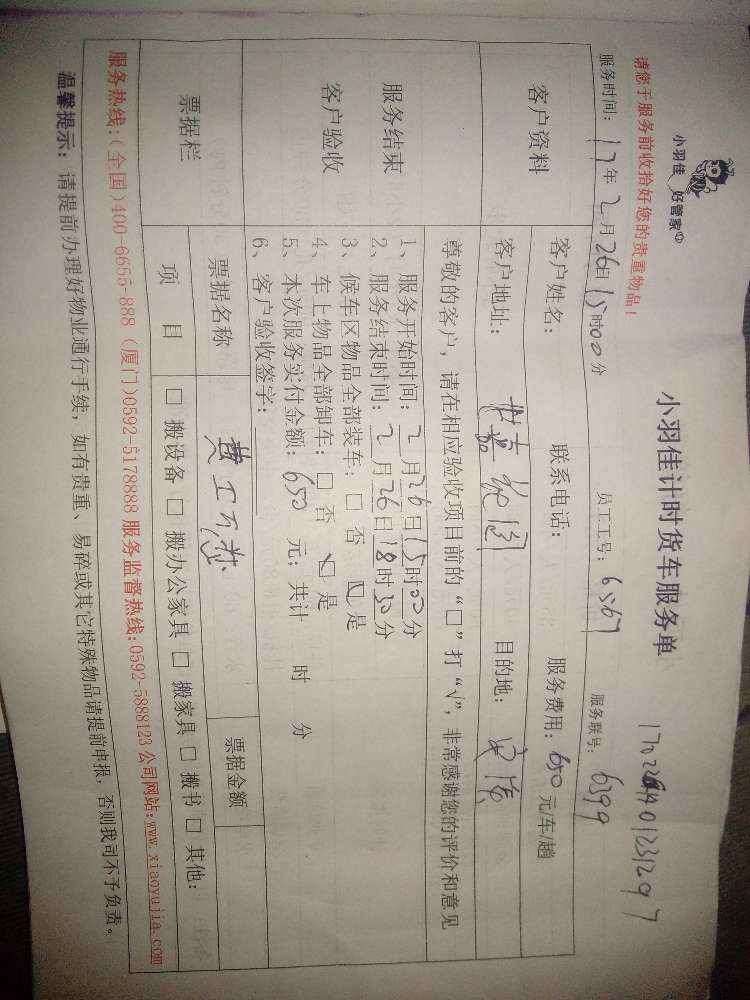 小羽佳 好管家
请您于服务前收拾好您的贵重物品！
小羽佳计时货车服务单
服务时间：17年2月26日15时00分 员工工号：6567 服务联号：6399
客户资料
客户姓名： 联系电话： 服务费用：650元/车/趟
客户地址： 目的地：
服务结束
客户验收
尊敬的客户，请在相应验收项目前的“□”打“√”，非常感谢您的评价和意见
1、服务开始时间：2月26日15时00分
2、服务结束时间：2月26日18时30分
3、候车区物品全部装车：□否 ☑是
4、车上物品全部卸车：□否 ☑是
5、本次服务实付金额：650元；共计 时 分
6、客户验收签字：
票据栏
票据名称 票据金额
项 目 □搬设备 □搬办公家具 □搬家具 □搬书 □其他：
服务热线：（全国）400-6655-888（厦门）0592-5178888 服务监督热线：0592-5888123 公司网站：www.xiaoyujia.com
温馨提示：请提前办理好物业通行手续，如有贵重、易碎或其它特殊物品请提前申报，否则我司不予负责。